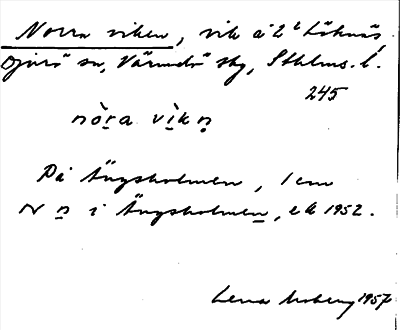 Norra viken, vik å 2¹ Löknäs,
Djurö sn, Värmdö skg, Sthlms. l.
245
nò̱ra vì̱kn̥
På Ängsholmen, 1 cm
N n̲ i Ängsholmen̲, ek 1952.
Lena Moberg 1957